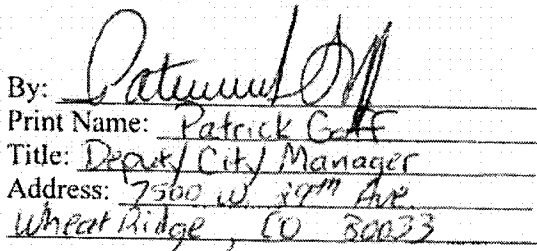 By:
Print Name: Patrick Goff
Title: Deputy City Manager
Address: 7500 W. 29th Ave.
Wheat Ridge, CO 80033